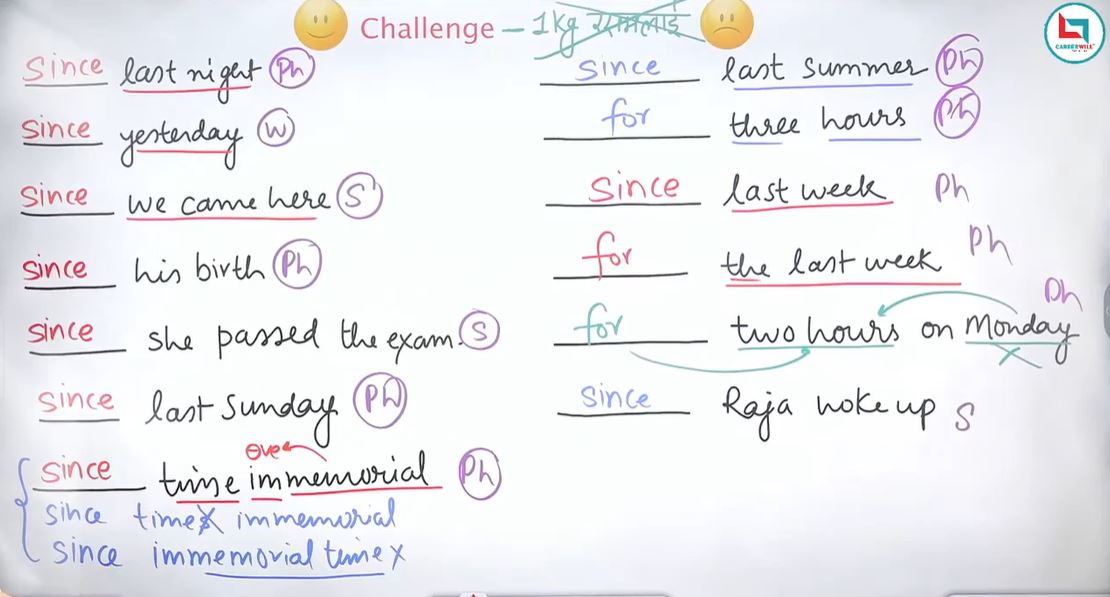 Challenge – 1kg रसमलाई
CAREERWILL
Since last night Ph
since yesterday W
Since we came here S
since his birth Ph
since she passed the exam. S
since last Sunday Ph
ever
since time immemorial Ph
since times immemorial
since immemorial time x
since last summer Ph
for three hours Ph
Since last week Ph
for the last week Ph
for two hours on Monday Ph
since Raja woke up S